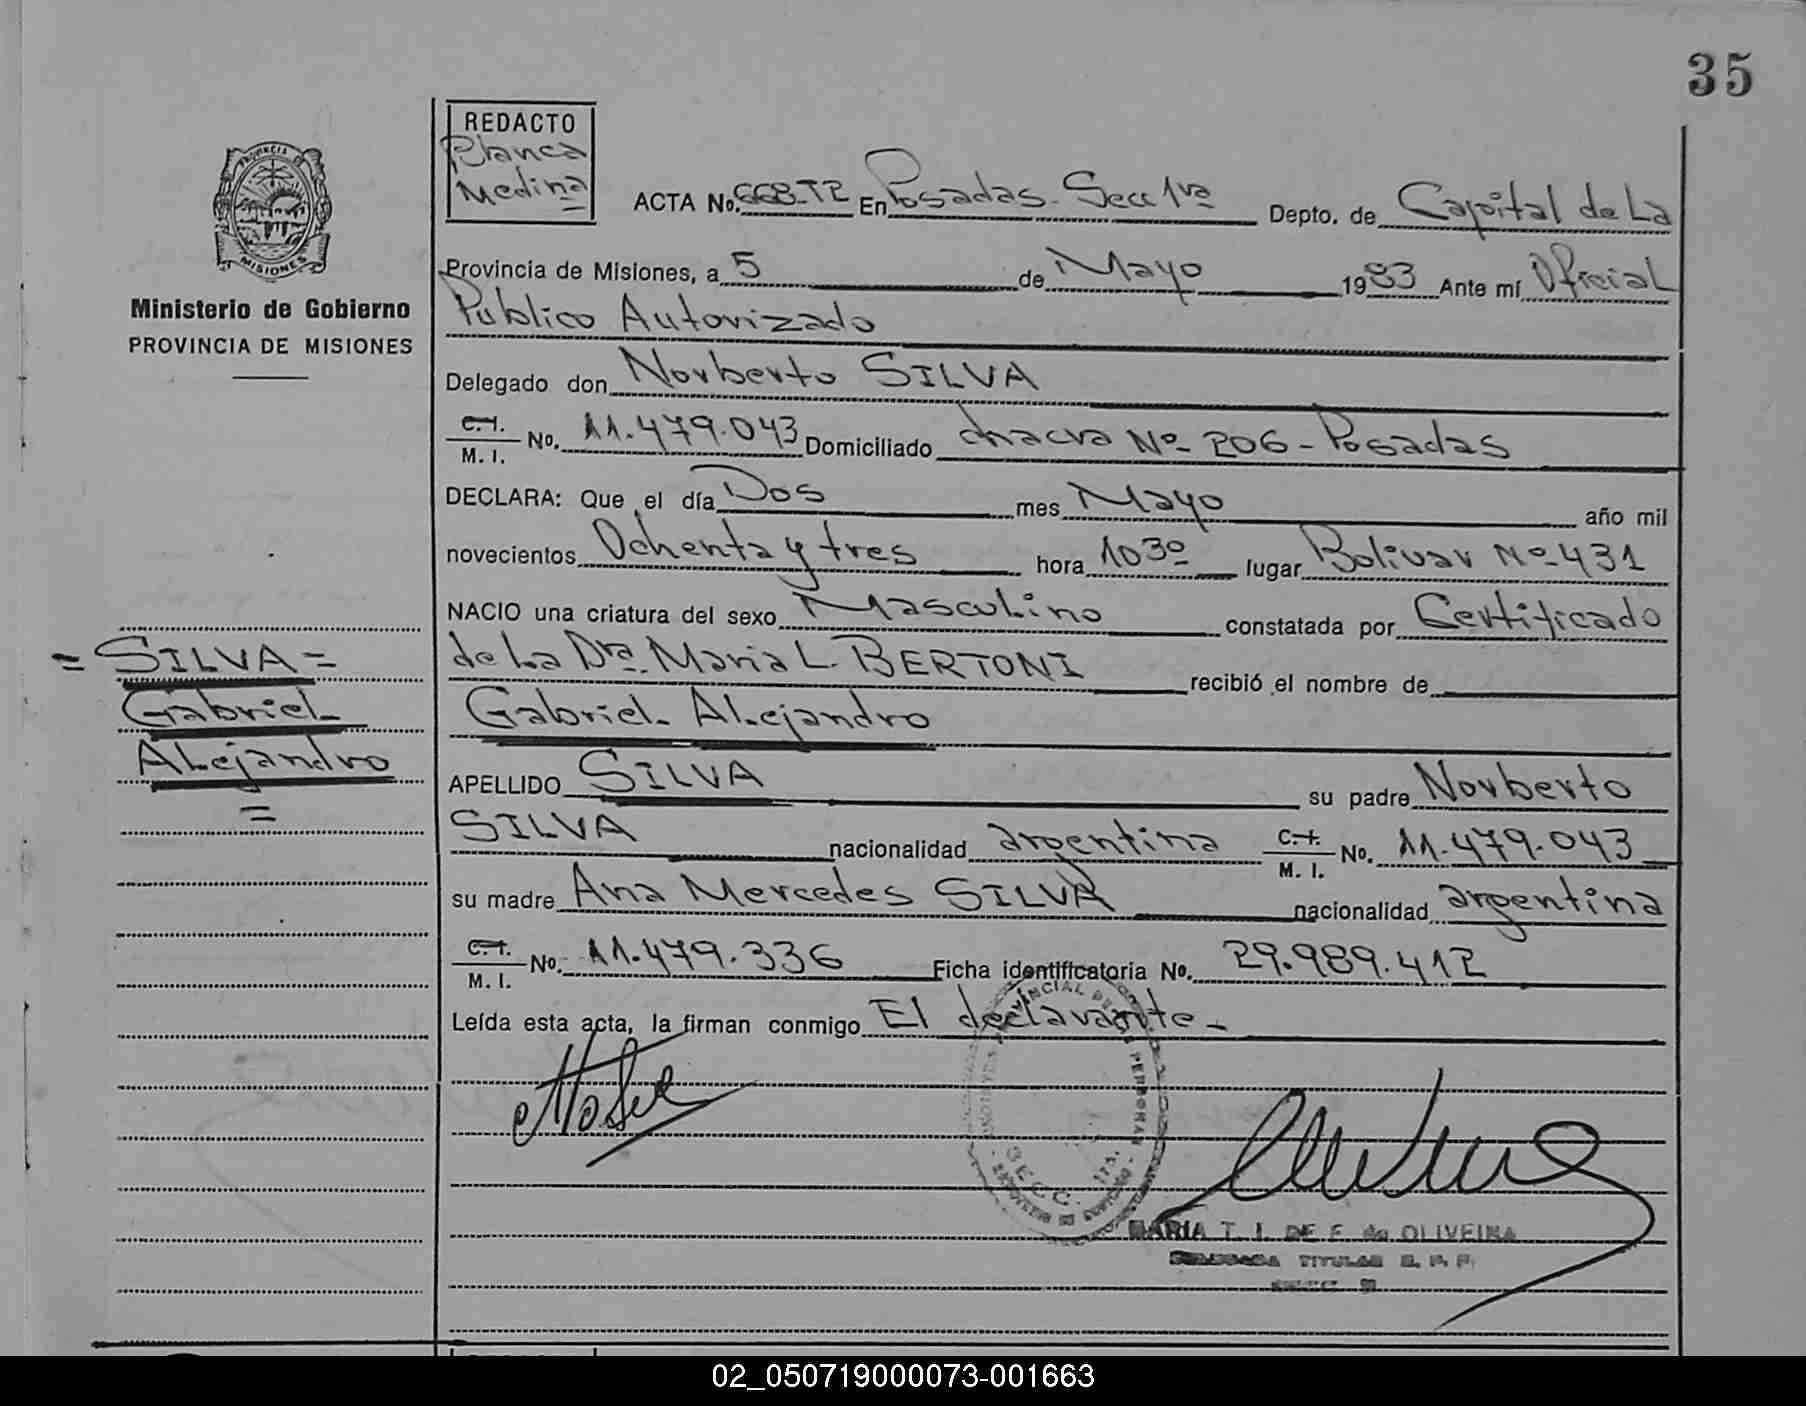 35
REDACTO
Blanca
Medina
ACTA No. 668-T2 En Posadas - Secc 1ra Depto. de Capital de La
Provincia de Misiones, a 5 de Mayo 1983 Ante mí Oficial
Publico Autorizado
Delegado don Norberto SILVA
C. I. / M. I. No. 11.479.043 Domiciliado chacra Nº 206 - Posadas
DECLARA: Que el día Dos mes Mayo año mil
novecientos Ochenta y tres hora 1030 lugar Bolivar Nº 431
NACIO una criatura del sexo Masculino constatada por Certificado
de La Dra. Maria L. BERTONI recibió el nombre de
Gabriel Alejandro
APELLIDO SILVA su padre Norberto
SILVA nacionalidad argentina C. I. / M. I. No. 11.479.043
su madre Ana Mercedes SILVA nacionalidad argentina
C. I. / M. I. No. 11.479.336 Ficha identificatoria No. 29.989.412
Leída esta acta, la firman conmigo El declarante -
MARIA T. I. DE F. de OLIVEIRA
TITULAR
SECC
PROVINCIA DE
MISIONES
Ministerio de Gobierno
PROVINCIA DE MISIONES
= SILVA =
Gabriel
Alejandro
=
02_050719000073-001663